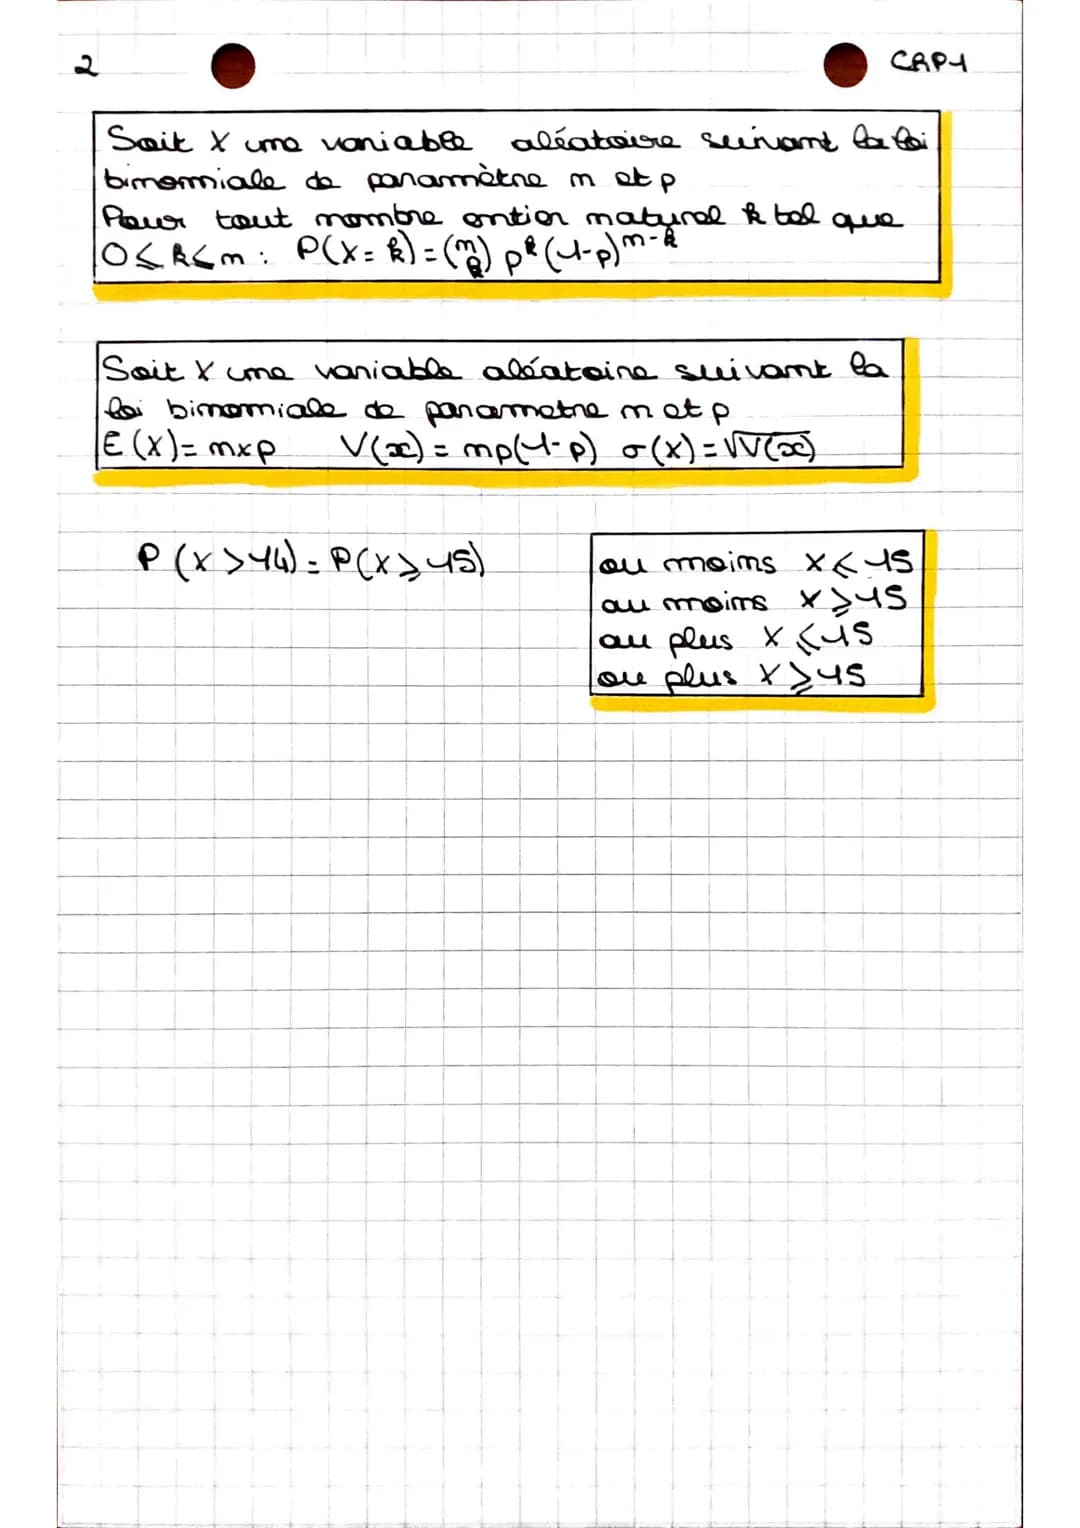 2
CAP1
Soit X une variable aléatoire suivant la loi
binomniale de paramètre n et p
Pour tout nombre entier natural k tel que
0 ≤ k ≤ n : P(X = k) = (n k) p^k (1-p)^n-k
Soit X une variable aléatoire suivant la
loi binomiale de parametre n et p
E (X) = n×p V(x) = np(1-p) σ(X) = √V(x)
P (X > 14) = P(X ≥ 15)
ou moins X ≤ 15
au moins X ≥ 15
au plus X ≤ 15
ou plus X ≥ 15